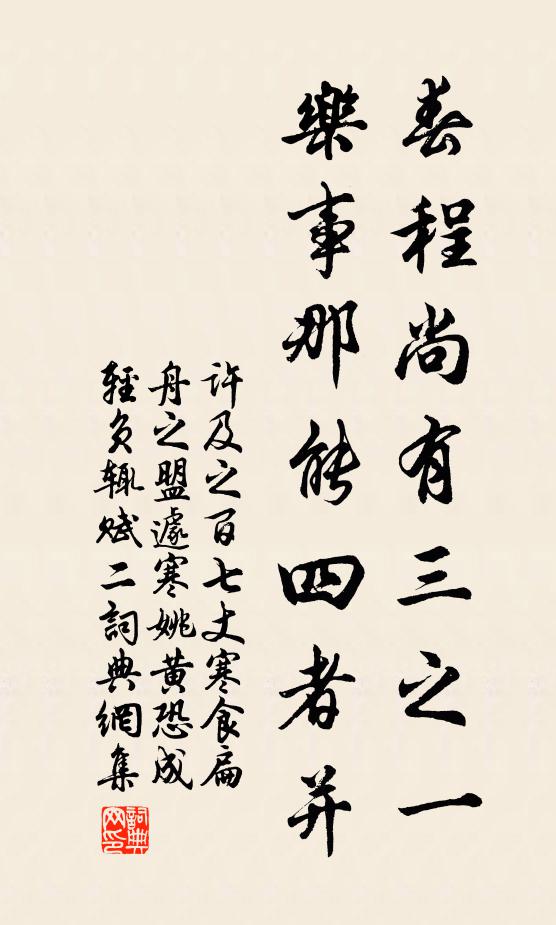 春程尚有三之一
樂事那能四者并
許及之百七丈寒食扁
舟之盟遽寒姚黄恐成
輕負輒赋二詞典網集
詞典
网印